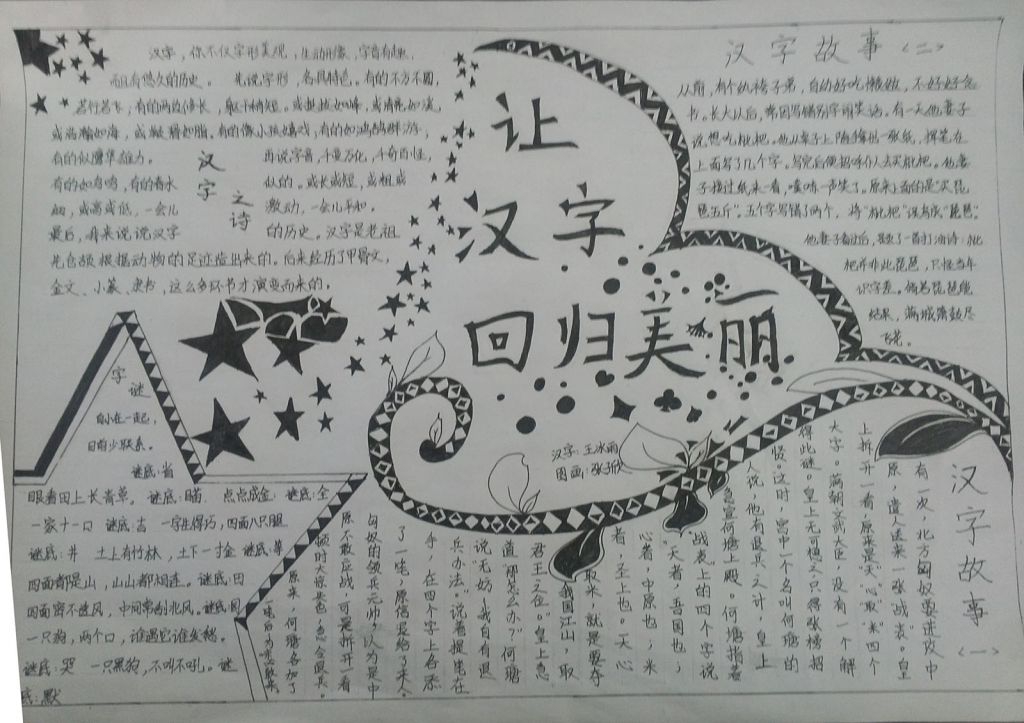 让
汉字
回归美丽
汉字:王冰雨
图画:张予欣
汉字之诗
汉字,你不仅字形美观,生动形像,字音有趣,
而且有悠久的历史。先说字形,各具特色。有的不方不圆,
若行若飞,有的两边修长,躯干稍短。
有的似鹰隼雄力。
再说字音,千变万化,千奇百怪,
有的如鸟鸣,有的春水
似的。或长或短,或粗或
细,或高或低,一会儿
激动,一会儿平和。
最后,再来说说汉字
的历史。汉字是老祖
先仓颉根据动物的足迹造出来的。后来经历了甲骨文,
金文、小篆、隶书,这么多环节才演变而来的。
汉字故事<二>
从前,有个纨绔子弟,自幼好吃懒做,不好好念
书。长大以后,常因写错别字闹笑话。有一天他妻子
说想吃枇杷。他从桌子上随手拿出一张纸,挥笔在
上面写了几个字,写完后便招呼仆人去买枇杷。他妻
子接过纸来一看,噗哧一声笑了。原来上面的是"买琵
琶五斤"。五个字写错了两个,将"枇杷"误写成"琵琶"。
他妻子看过后,题了一首打油诗:枇
杷并非此琵琶,只怪当年
识字差。倘若琵琶能
结果,满城箫鼓尽
飞花。
字谜
自小在一起,
目前少联系。
谜底:省
眼看田上长青草。谜底:瞄。点点成金。谜底:全
一家十一口 谜底:吉 一字生得巧,四面八只脚
谜底:井 土上有竹林,土下一寸金 谜底:等
四面都是山,山山都相连。谜底:田
四面窗不透风,
一只狗,两个口,谁遇它谁发愁。
谜底:哭 一只黑狗,不叫不吼。谜
底:默
汉字故事<一>
有一次,北方匈奴要进攻中
原,遣人送来一张"战表"。皇
上拆开一看,原来是"天心取米"四个
大字。满朝文武大臣,没有一个解
得此谜。皇上无可奈何,只得张榜招
贤。这时,宫中一个名叫何瑭的
人说,他有退兵之计,皇上
急宣何瑭上殿。何瑭指着
"战表"上的四个字说:
"天者,吾国也;
心者,中原也;米
者,圣上也。天心
取米,就是要夺
我国江山,取
君王之位。"皇上急
道:"那怎么办?"何瑭
说:"无妨,我自有退
兵办法。"说着提笔在
手,在四个字上各添
了一笔,原信退给了来人。
匈奴的领兵元帅,以为是中
原不敢应战,可是拆开一看
顿时大惊失色,急令退兵。
原来,何瑭各加了